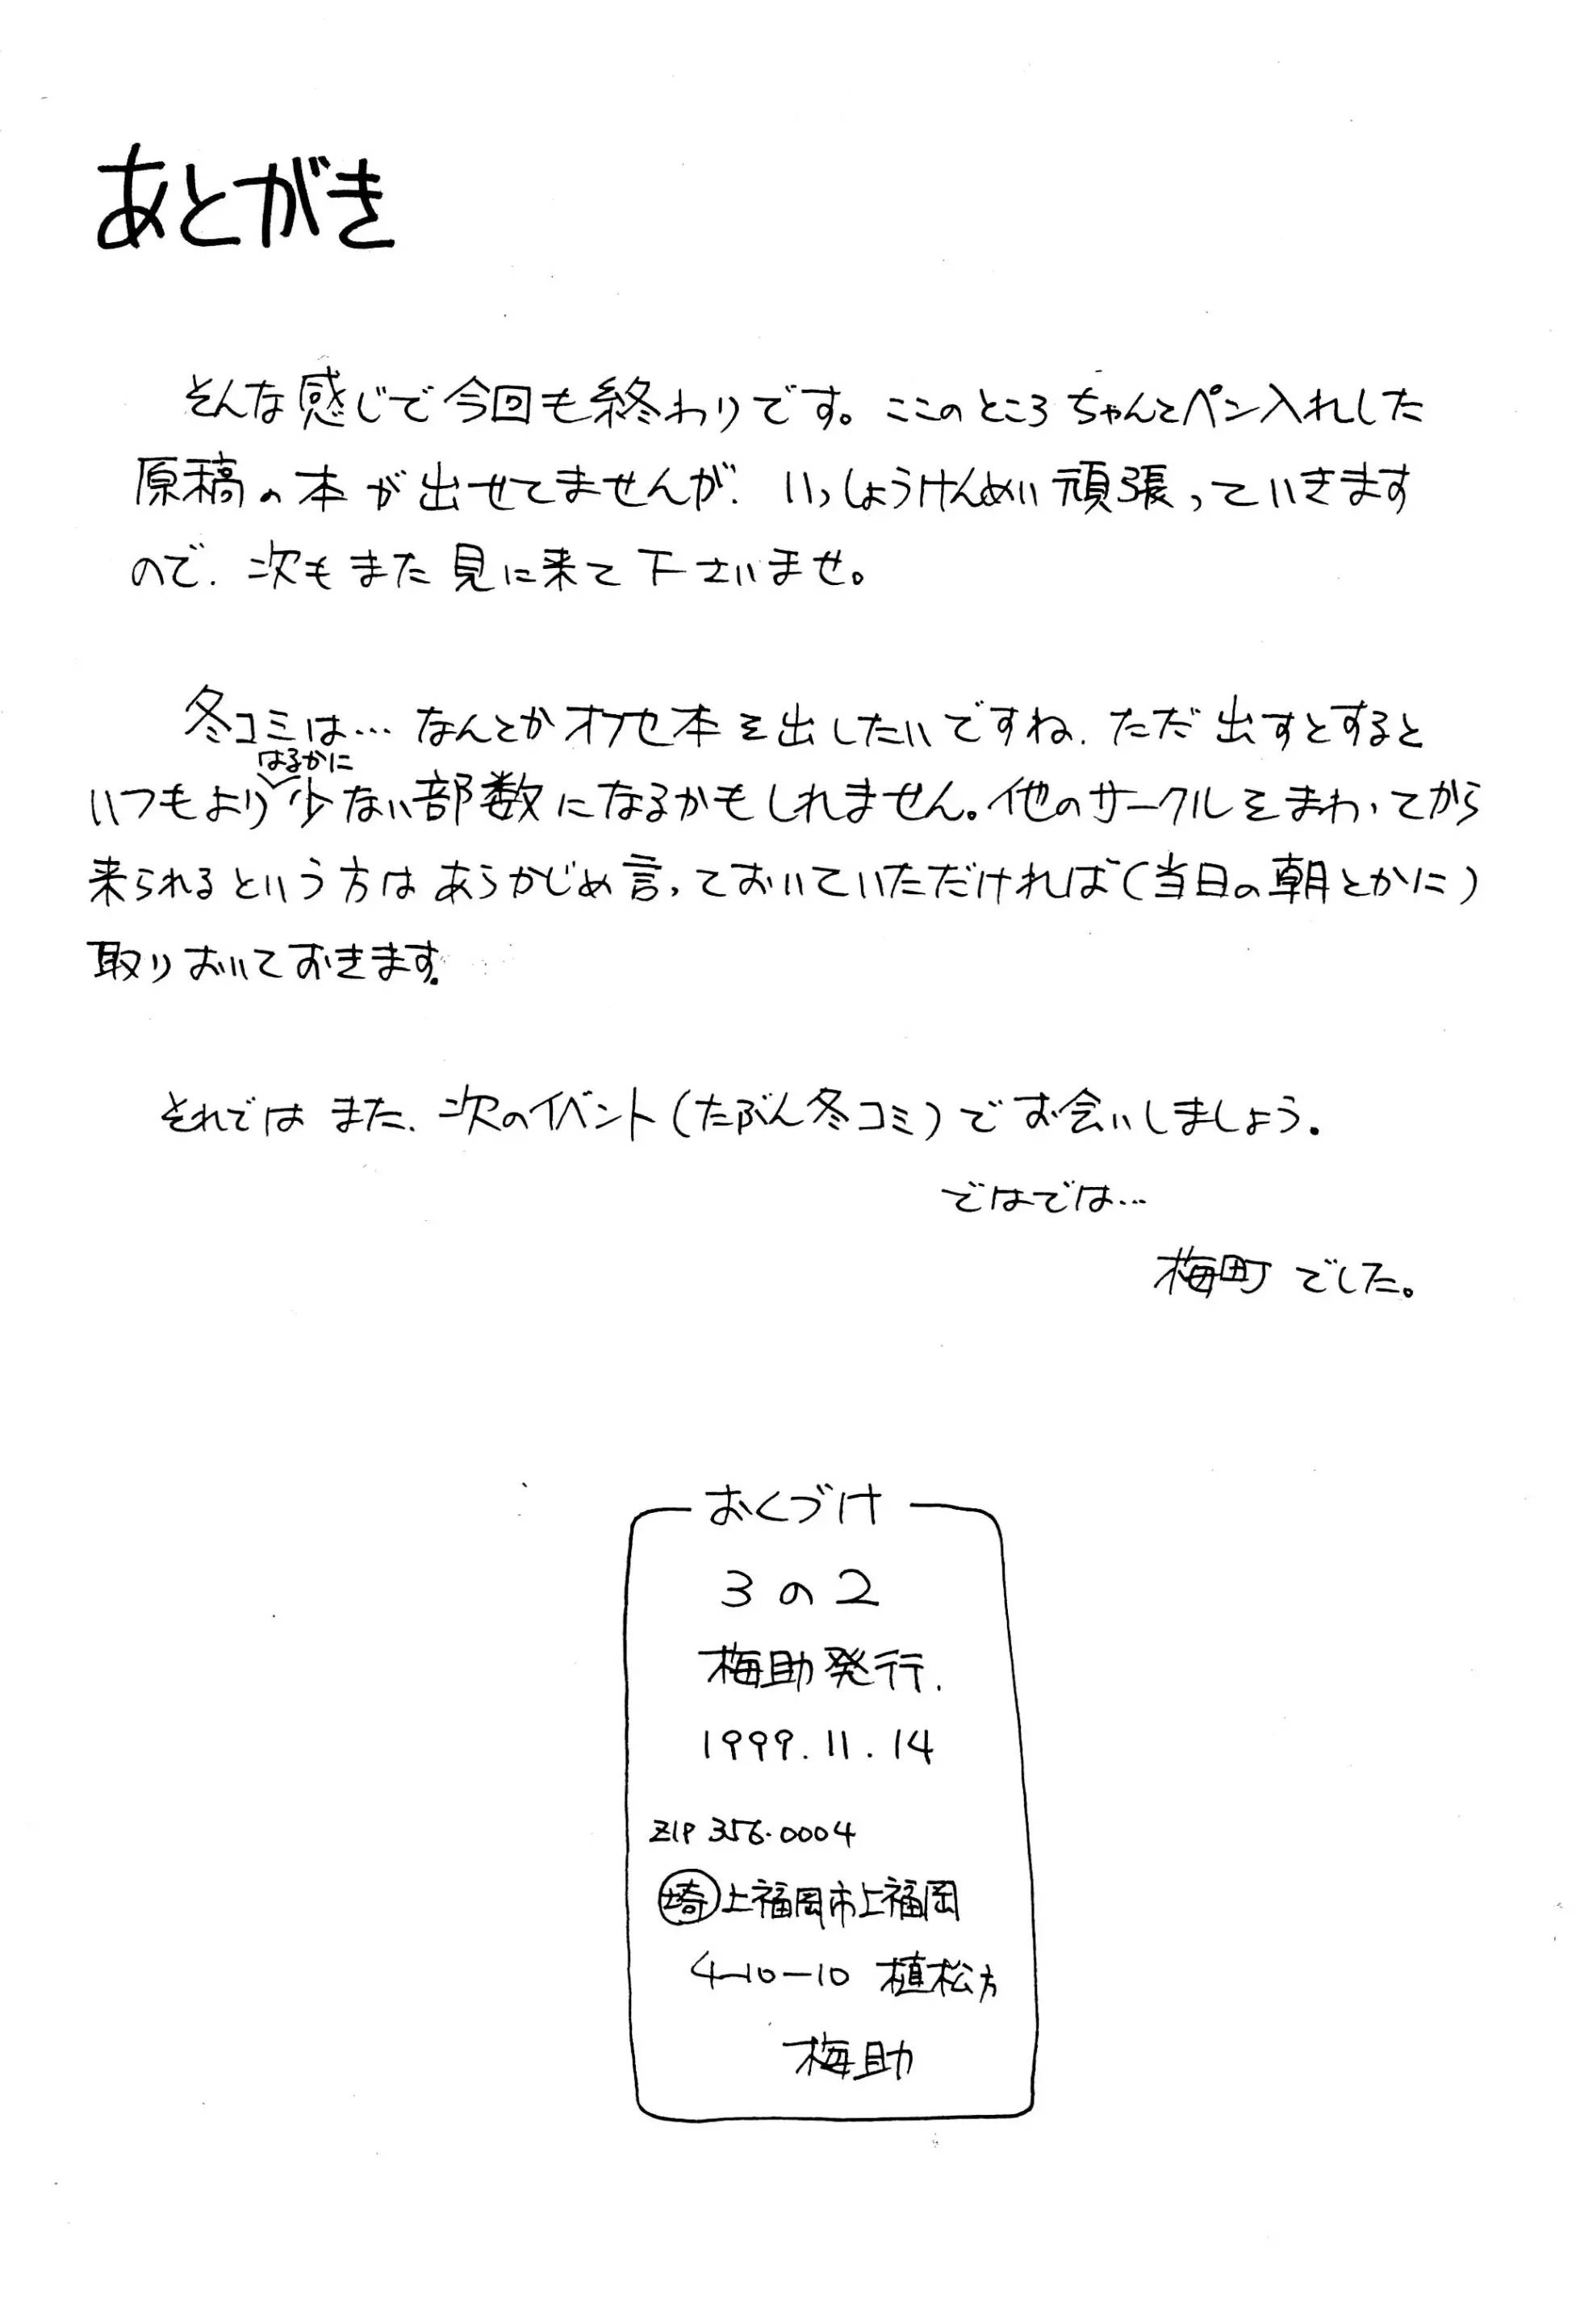 あとがき
そんな感じで今回も終わりです。ここのところちゃんとペン入れした
原稿の本が出せてませんが、いっしょうけんめい頑張っていきます
ので、次もまた見に来て下さいませ。
冬コミは…なんとかオフセ本を出したいですね、ただ出すとすると
はるかに
いつもより少ない部数になるかもしれません。他のサークルをまわってから
来られるという方はあらかじめ言っておいていただければ(当日の朝とかに)
取りおいておきます。
それではまた、次のイベント(たぶん冬コミ)でお会いしましょう。
ではでは…
梅町でした。
おくづけ
3の2
梅助発行.
1999.11.14
ZIP 356-0004
埼上福岡市上福岡
4-10-10 植松方
梅助